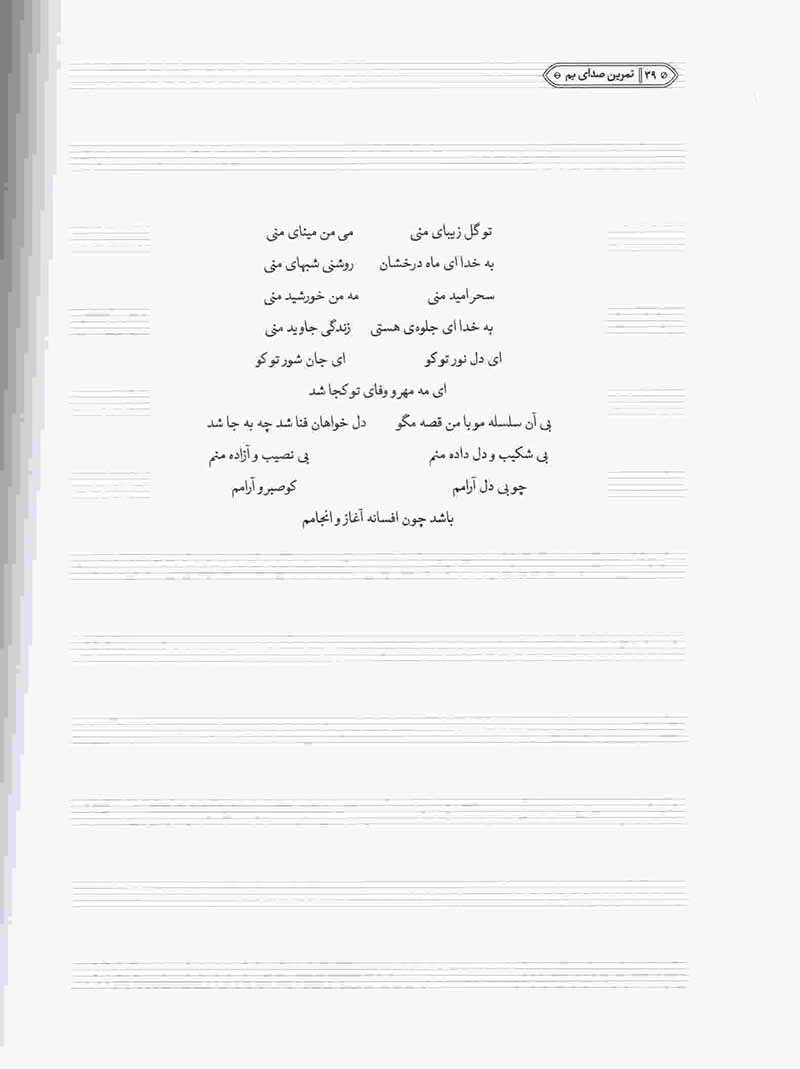 ۳۹ تمرین صدای بم
تو گل زیبای منی می من مینای منی
به خدا ای ماه درخشان روشنی شبهای منی
سحر امید منی مه من خورشید منی
به خدا ای جلوه‌ی هستی زندگی جاوید منی
ای دل نور تو کو ای جان شور تو کو
ای مه مهر و وفای تو کجا شد
بی آن سلسله مو با من قصه مگو دل خواهان فنا شد چه به جا شد
بی شکیب و دل داده منم بی نصیب و آزاده منم
چو بی دل آرامم کو صبر و آرامم
باشد چون افسانه آغاز و انجامم